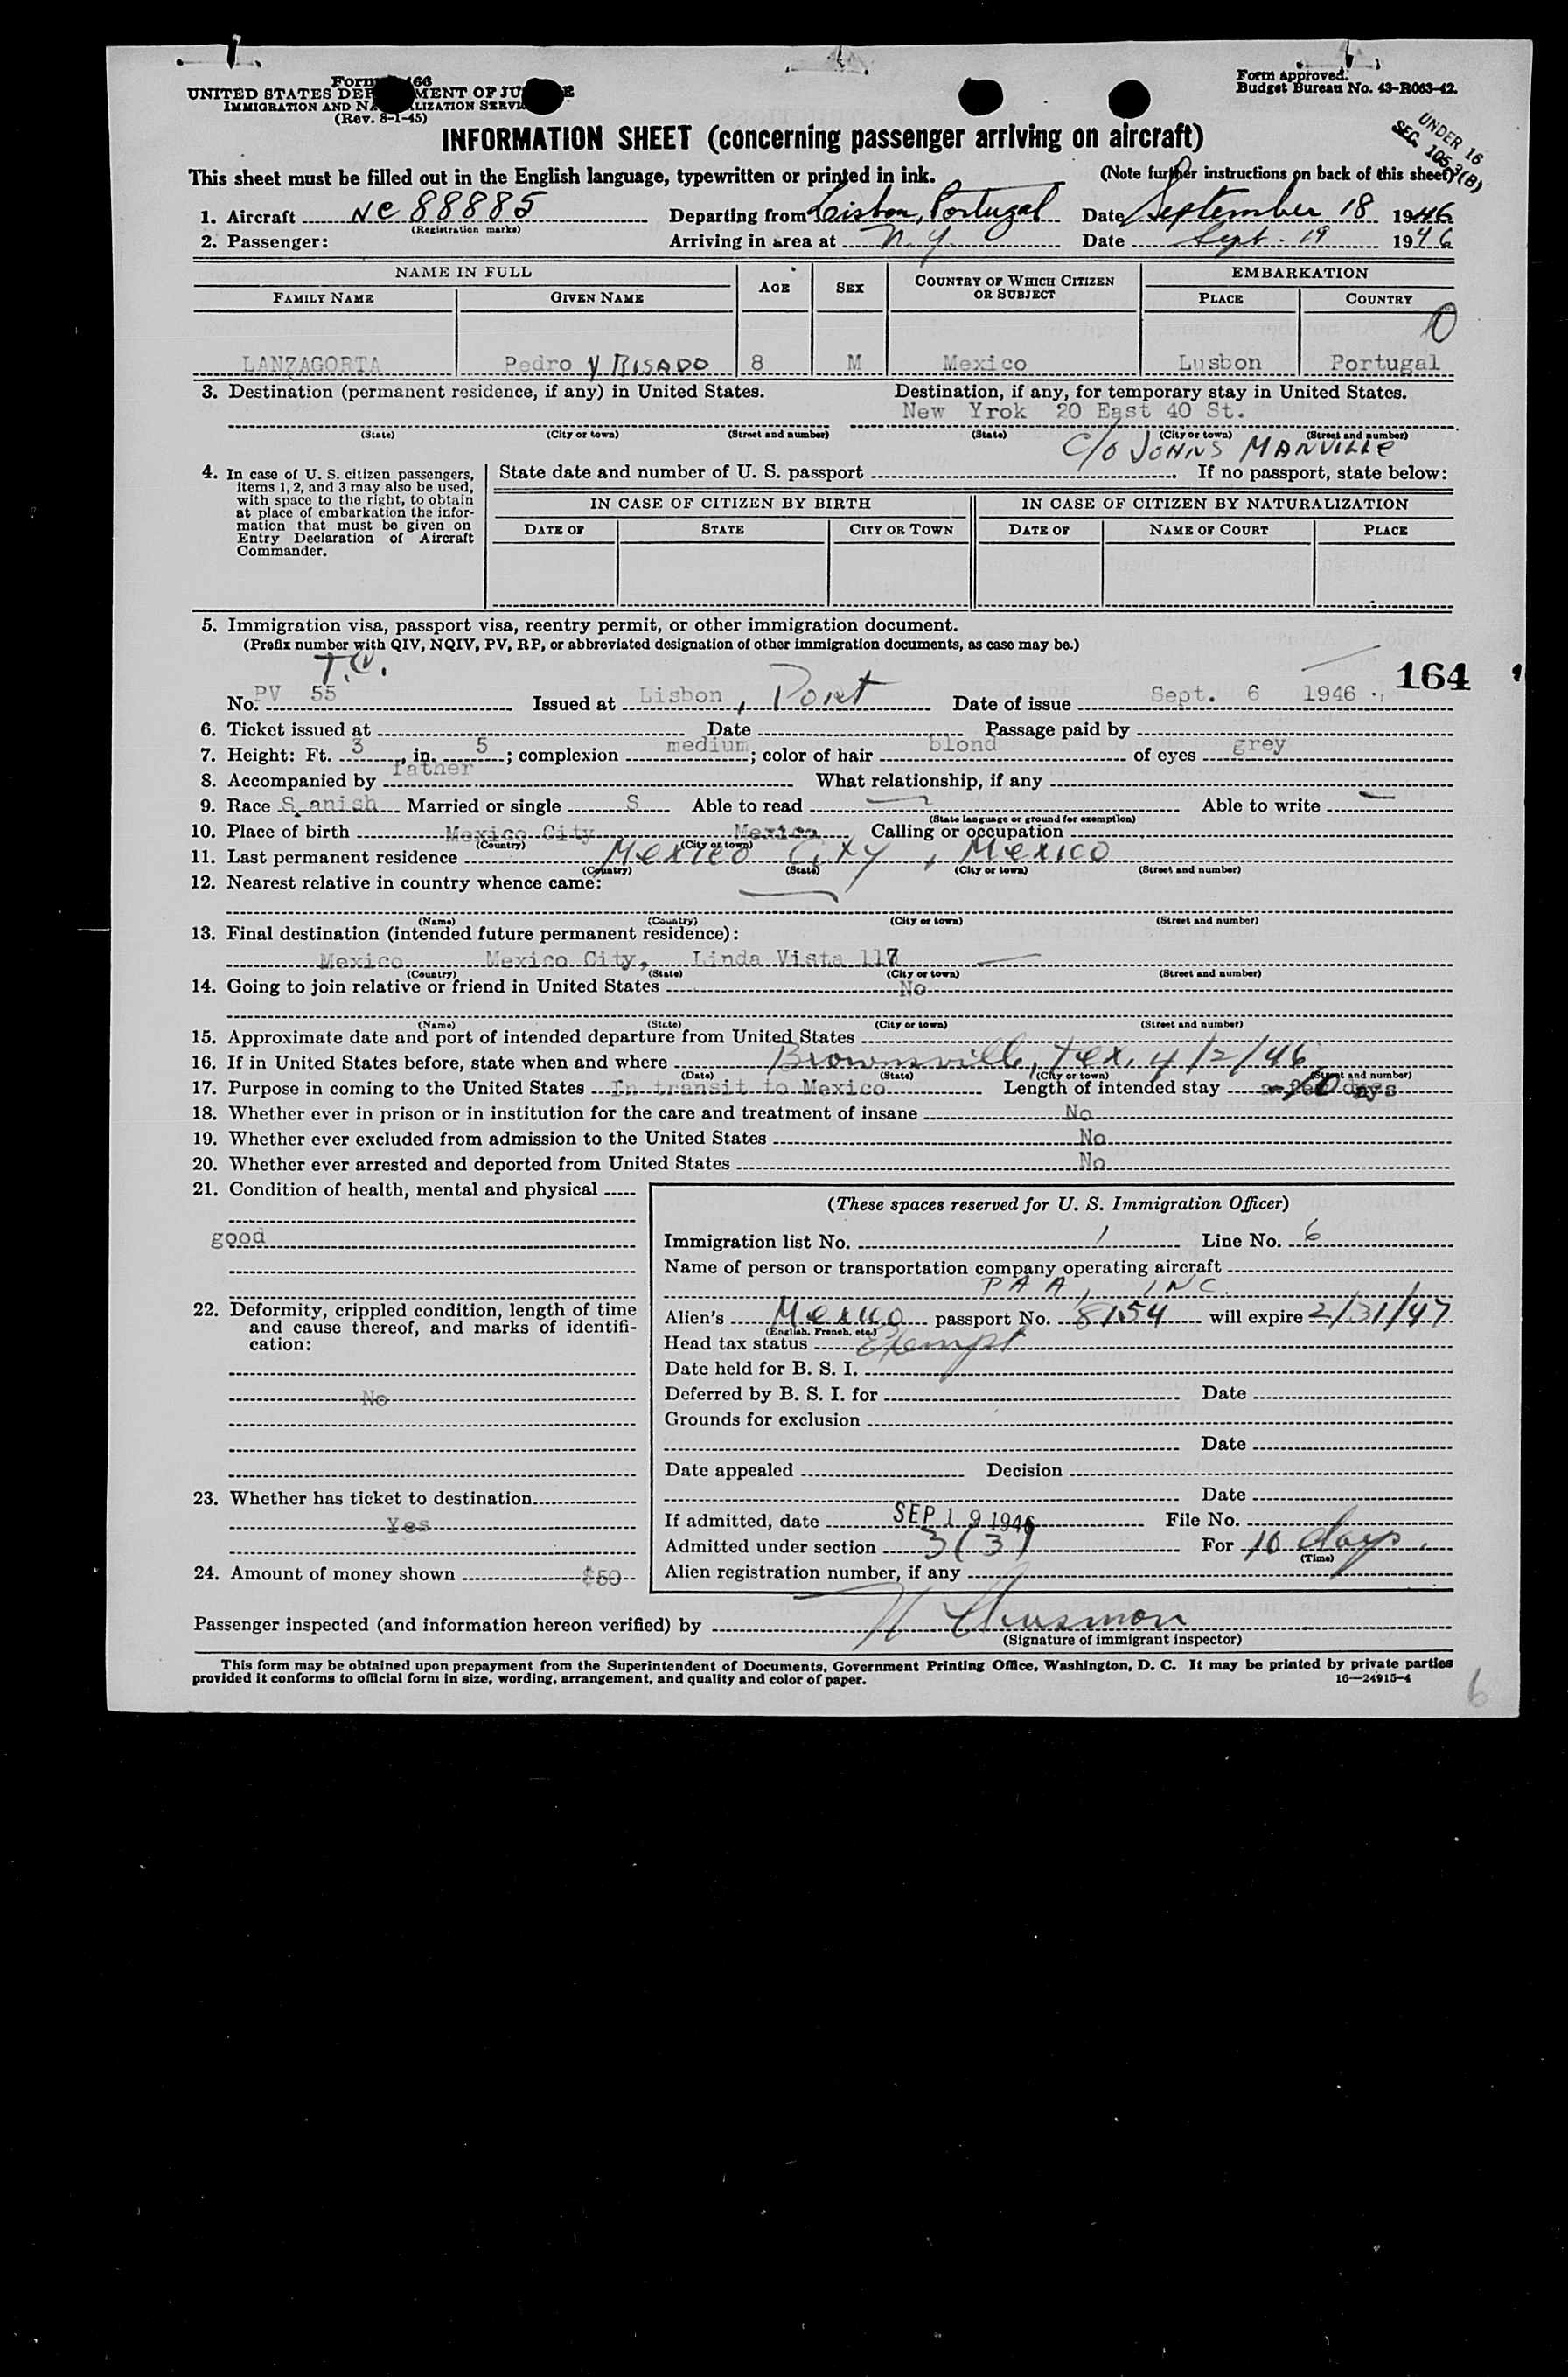 Form 66
UNITED STATES DEP MENT OF JU E
IMMIGRATION AND NA LIZATION SERVI
(Rev. 8-1-45)
Form approved.
Budget Bureau No. 43-R063-42.
UNDER 16
SEC. 105.3(B)
INFORMATION SHEET (concerning passenger arriving on aircraft)
This sheet must be filled out in the English language, typewritten or printed in ink. (Note further instructions on back of this sheet)
1. Aircraft NC 88885 Departing from Lisbon, Portugal Date September 18 1946
(Registration marks)
2. Passenger: Arriving in area at N.Y. Date Sept. 19 1946
NAME IN FULL AGE SEX COUNTRY OF WHICH CITIZEN OR SUBJECT EMBARKATION
FAMILY NAME GIVEN NAME PLACE COUNTRY
LANZAGORTA Pedro y RISADO 8 M Mexico Lusbon Portugal
3. Destination (permanent residence, if any) in United States. Destination, if any, for temporary stay in United States.
New Yrok 20 East 40 St.
(State) (City or town) (Street and number) (State) (City or town) (Street and number)
C/O JOHNS MANVILLE
4. In case of U. S. citizen passengers, items 1, 2, and 3 may also be used, with space to the right, to obtain at place of embarkation the information that must be given on Entry Declaration of Aircraft Commander.
State date and number of U. S. passport If no passport, state below:
IN CASE OF CITIZEN BY BIRTH IN CASE OF CITIZEN BY NATURALIZATION
DATE OF STATE CITY OR TOWN DATE OF NAME OF COURT PLACE
5. Immigration visa, passport visa, reentry permit, or other immigration document.
(Prefix number with QIV, NQIV, PV, RP, or abbreviated designation of other immigration documents, as case may be.)
T.V.
164
No. PV 55 Issued at Lisbon, Port Date of issue Sept. 6 1946
6. Ticket issued at Date Passage paid by
7. Height: Ft. 3, in. 5; complexion medium; color of hair blond of eyes grey
8. Accompanied by father What relationship, if any
9. Race S anish Married or single S Able to read Able to write
(State language or ground for exemption)
10. Place of birth Mexico City Mexico Calling or occupation
(Country) (City or town)
11. Last permanent residence Mexico City, Mexico
(Country) (State) (City or town) (Street and number)
12. Nearest relative in country whence came:
(Name) (Country) (City or town) (Street and number)
13. Final destination (intended future permanent residence):
Mexico Mexico City, Linda Vista 117
(Country) (State) (City or town) (Street and number)
14. Going to join relative or friend in United States No
(Name) (State) (City or town) (Street and number)
15. Approximate date and port of intended departure from United States
16. If in United States before, state when and where Brownsville, Tex. 4/2/46
(Date) (State) (City or town) (Street and number)
17. Purpose in coming to the United States In transit to Mexico Length of intended stay 10 days
18. Whether ever in prison or in institution for the care and treatment of insane No
19. Whether ever excluded from admission to the United States No
20. Whether ever arrested and deported from United States No
21. Condition of health, mental and physical
good
22. Deformity, crippled condition, length of time and cause thereof, and marks of identification:
No
23. Whether has ticket to destination
Yes
24. Amount of money shown $50
(These spaces reserved for U. S. Immigration Officer)
Immigration list No. 1 Line No. 6
Name of person or transportation company operating aircraft
PAA, INC.
Alien's Mexico passport No. 8154 will expire 2/31/47
(English, French, etc.)
Head tax status Exempt
Date held for B. S. I.
Deferred by B. S. I. for Date
Grounds for exclusion
Date
Date appealed Decision
Date
If admitted, date SEP 19 1946 File No.
Admitted under section 3(3) For 10 days.
(Time)
Alien registration number, if any
Passenger inspected (and information hereon verified) by
(Signature of immigrant inspector)
This form may be obtained upon prepayment from the Superintendent of Documents, Government Printing Office, Washington, D. C. It may be printed by private parties
provided it conforms to official form in size, wording, arrangement, and quality and color of paper. 16—24915-4
6